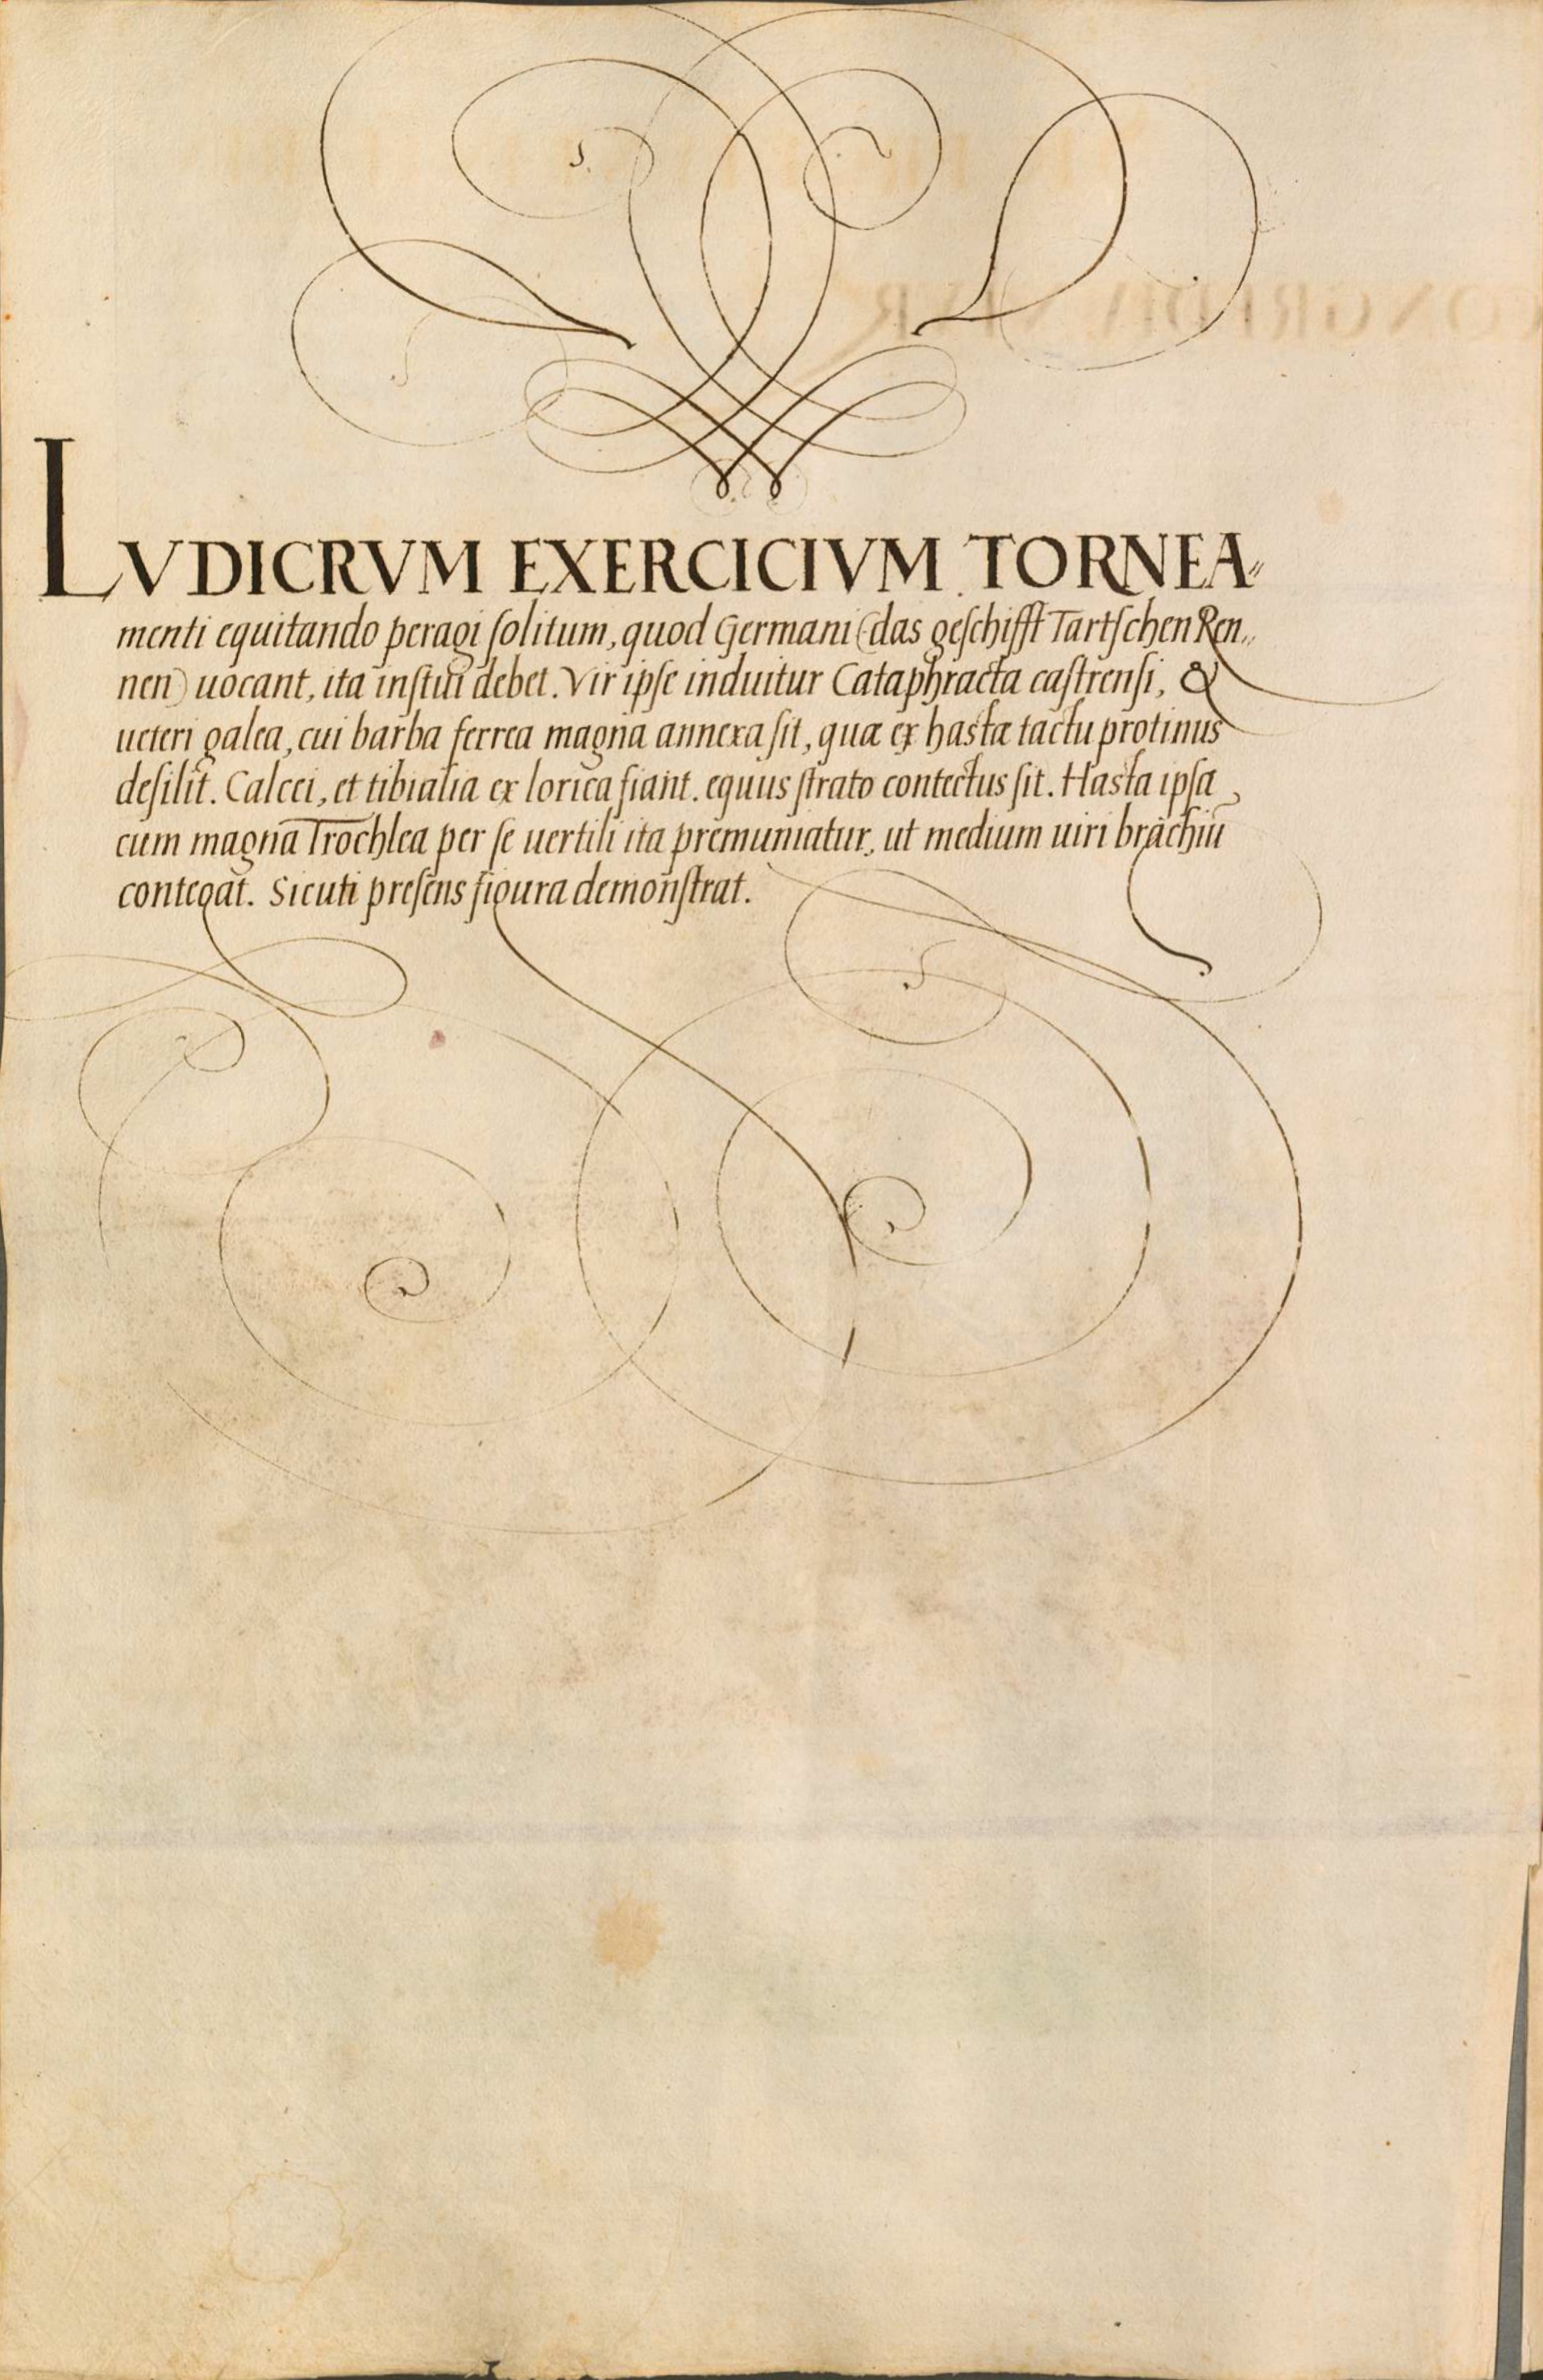 LVDICRVM EXERCICIVM TORNEA⸗
menti equitando peragi ſolitum, quod Germani (das geſchifft Tartſchen Ren⸗
nen) uocant, ita inſtitui debet. Vir ipſe induitur Cataphracta caſtrenſi, &
ueteri galea, cui barba ferrea magna annexa ſit, quæ ex hastæ tactu protinus
deſilit. Calcei, et tibialia ex lorica fiant. equus ſtrato contectus ſit. Hasta ipſa
cum magna Trochlea per ſe uertili ita premuniatur, ut medium uiri brachiū
contegat. Sicuti preſens figura demonſtrat.